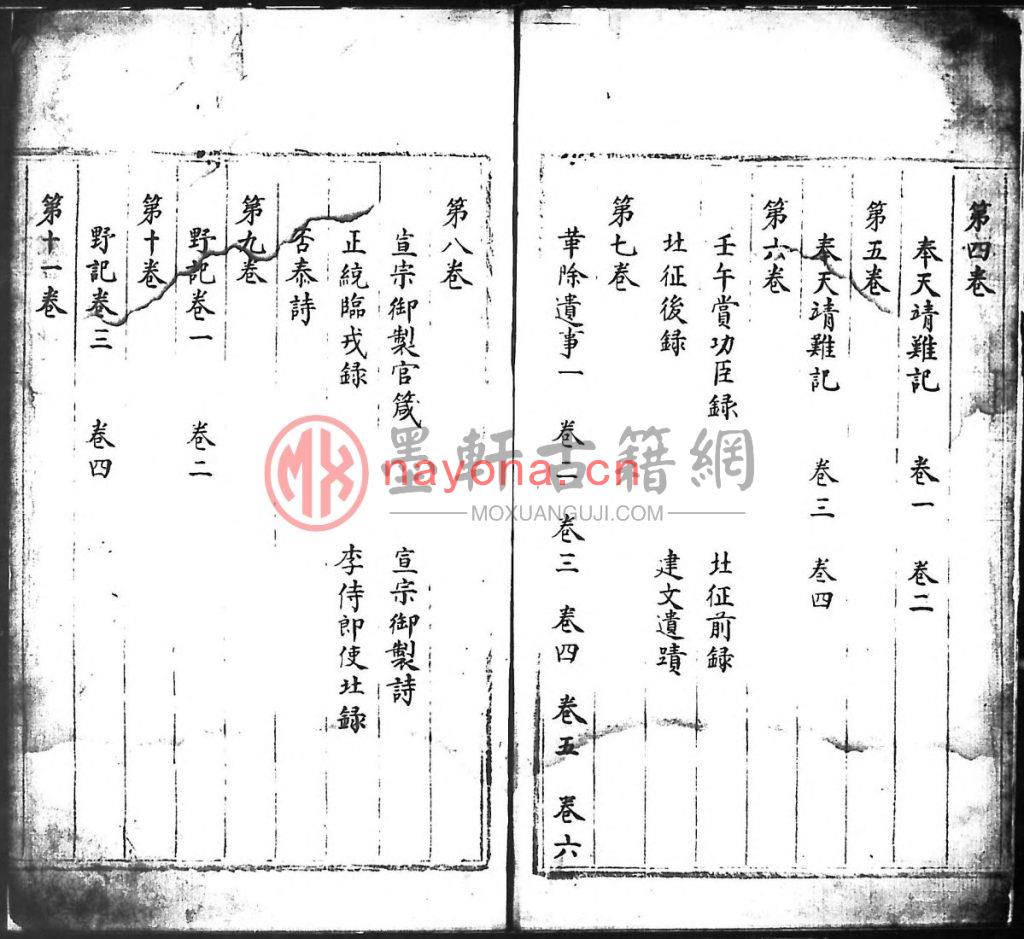 第四卷
奉天靖難記 卷一 卷二
第五卷
奉天靖難記 卷三 卷四
第六卷
壬午賞功臣録 北征前録
北征後録 建文遺蹟
第七卷
革除遺事一 卷二 卷三 卷四 卷五 卷六
第八卷
宣宗御製官箴 宣宗御製詩
正統臨戎録 李侍郎使北録
否泰詩
第九卷
野記卷一 卷二
第十卷
野記卷三 卷四
第十一卷
墨軒古籍網
nayona.cn
MOXUANGUJI.COM
MX